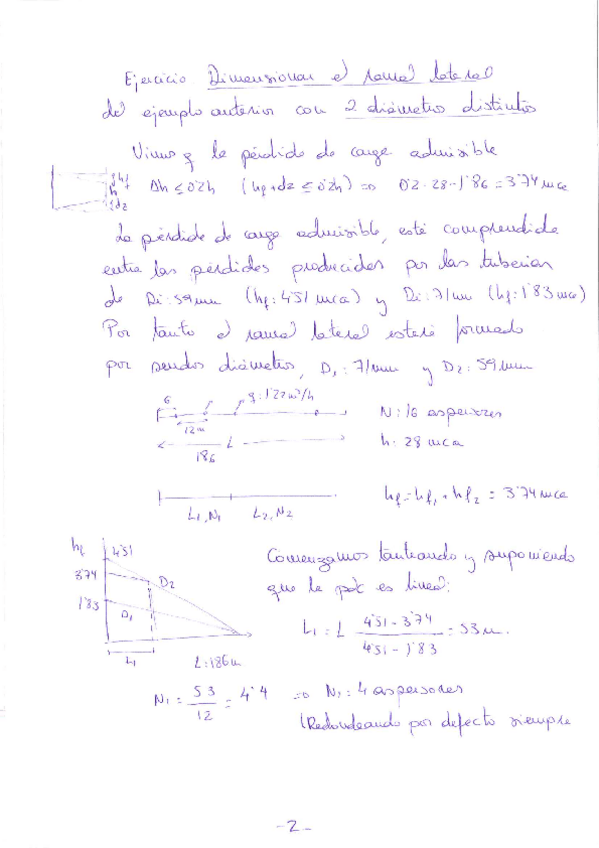 Ejercicio Dimensionar el ramal lateral
del ejemplo anterior con 2 diámetros distintos
Vimos q la pérdida de carga admisible
Δh ≤ 0'2h (hf + dz ≤ 0'2h) => 0'2·28 - 1'86 = 3'74 mca
hf
h
dz
La pérdida de carga admisible, está comprendida
entre las pérdidas producidas por las tuberías
de Di: 59mm (hf: 4'51 mca) y Di: 71mm (hf: 1'83 mca)
Por tanto el ramal lateral estará formado
por sendos diámetros, D1: 71mm y D2: 59mm
6
q: 1'22 m³/h
N: 16 aspersores
12m
L
h: 28 mca
186
hf = hf1 + hf2 = 3'74 mca
L1, N1
L2, N2
hf
4'51
3'74
1'83
D2
D1
L1
L: 186m
Comenzamos tanteando y suponiendo
que la pdc es lineal:
L1 = L (4'51 - 3'74) / (4'51 - 1'83) = 53m.
N1 = 53/12 = 4'4 => N1: 4 aspersores
(Redondeando por defecto siempre
- 2 -